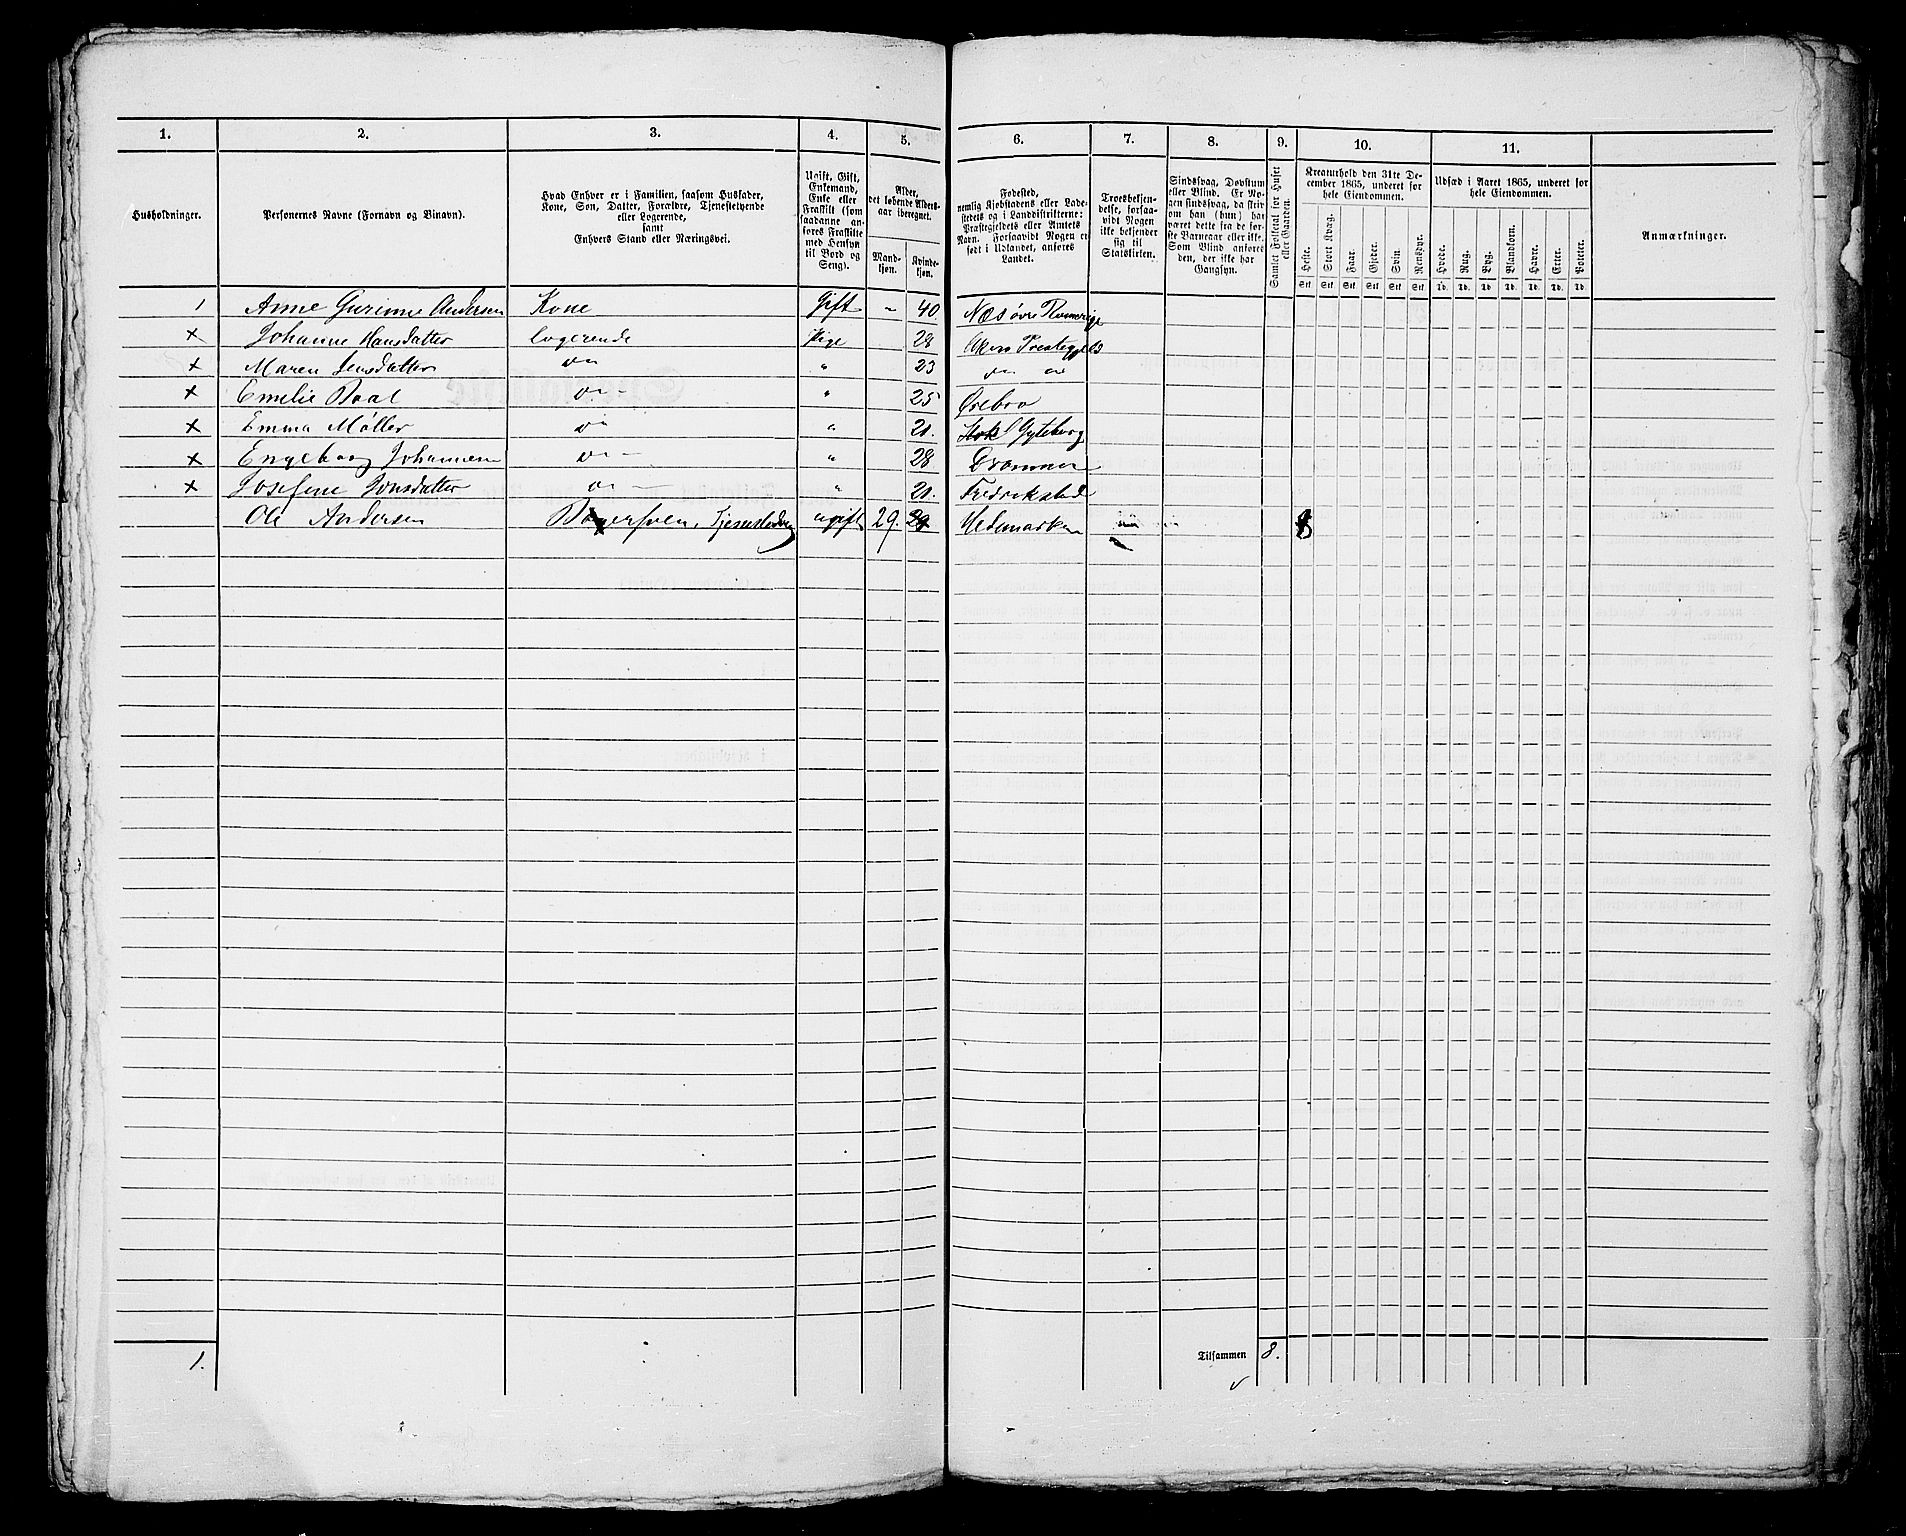 1. 2. 3. 4. 5. 6. 7. 8. 9. 10. 11.
Husholdninger.
Personernes Navne (Fornavn og Binavn).
Hvad Enhver er i Familien, saasom Husfader,
Kone, Søn, Datter, Forældre, Tjenestetyende
eller Logerende,
samt
Enhvers Stand eller Næringsvei.
Ugift, Gift,
Enkemand,
Enke eller
Fraskilt (som
saadanne an-
føres Fraskilte
med Hensyn
til Bord og
Seng).
Alder,
det løbende Alders-
aar iberegnet.
Mand-
kjøn.
Kvinde-
kjøn.
Fødested,
nemlig Kjøbstadens eller Lade-
stedets og i Landdistrikterne:
Præstegjeldets eller Amtets
Navn. Forsaavidt Nogen er
født i Udlandet, anføres
Landet.
Troesbekjen-
delse, forsaa-
vidt Nogen
ikke bekjender
sig til
Statskirken.
Sindssvag, Døvstum
eller Blind. Er No-
gen sindssvag, da skriv
om han (hun) har
været dette fra de før-
ste Barneaar eller ikke.
Som Blind anføres
den, der ikke har
Gangsyn.
Samlet Folketal for Huset
eller Gaarden.
Kreaturhold den 31te De-
cember 1865, underet for
hele Eiendommen.
Heste. Stort Kvæg. Faar. Gjeder. Svin. Rensdyr.
Stk. Stk. Stk. Stk. Stk. Stk.
Udsæd i Aaret 1865, underet for
hele Eiendommen.
Hvede. Rug. Byg. Blandkorn. Havre. Erter. Poteter.
Td. Td. Td. Td. Td. Td. Td.
Anmærkninger.
1 Anne Gurinne Andersen Kone Gift - 40. Næs øvre Romerige
x Johanne Hansdatter logerende Pige 28 Akers Prestegjeld
x Maren Jensdatter do " 23 do do
x Emelie Boal do " 25 Ørebro
x Emma Møller do " 21. Gøteborg
x Engeborg Johannesen do " 28 Drammen
x Josefine Jonsdatter do " 21. Fredrikstad
Ole Andersen ugift 29. Hedemarken 8
1.
Tilsammen 8.